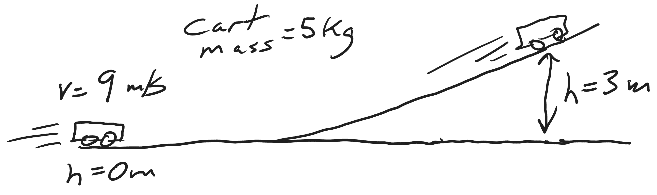 cart
mass = 5 kg
v = 9 m/s
h = 3 m
h = 0m